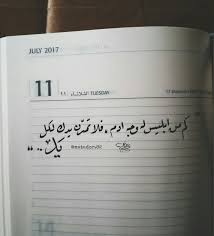 JULY 2017
11 ١١ الثلاثاء TUESDAY
كم من ابليس له وجه ادم ، فلا تمدن يدك لكل
يدٍ .. "